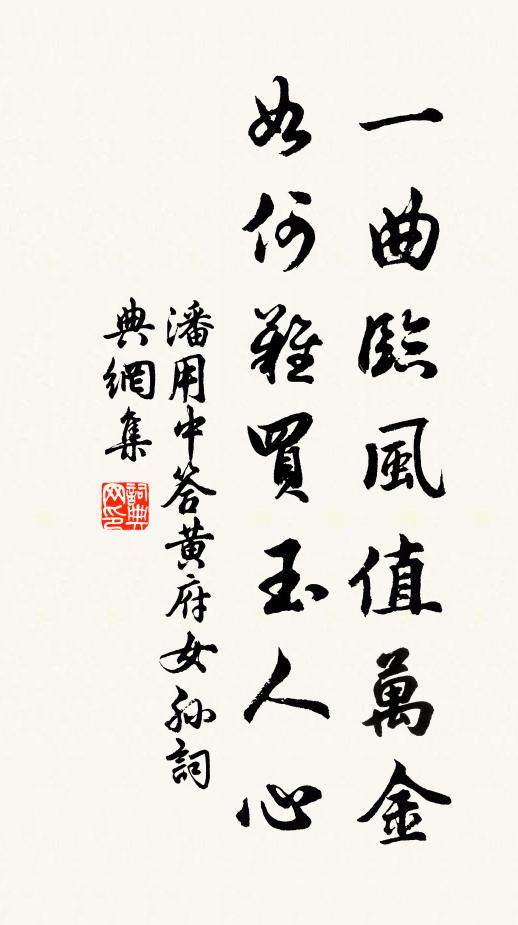 一曲臨風值萬金
如何難買玉人心
潘用中答黄府女孫詞
典網集
詞典
网印